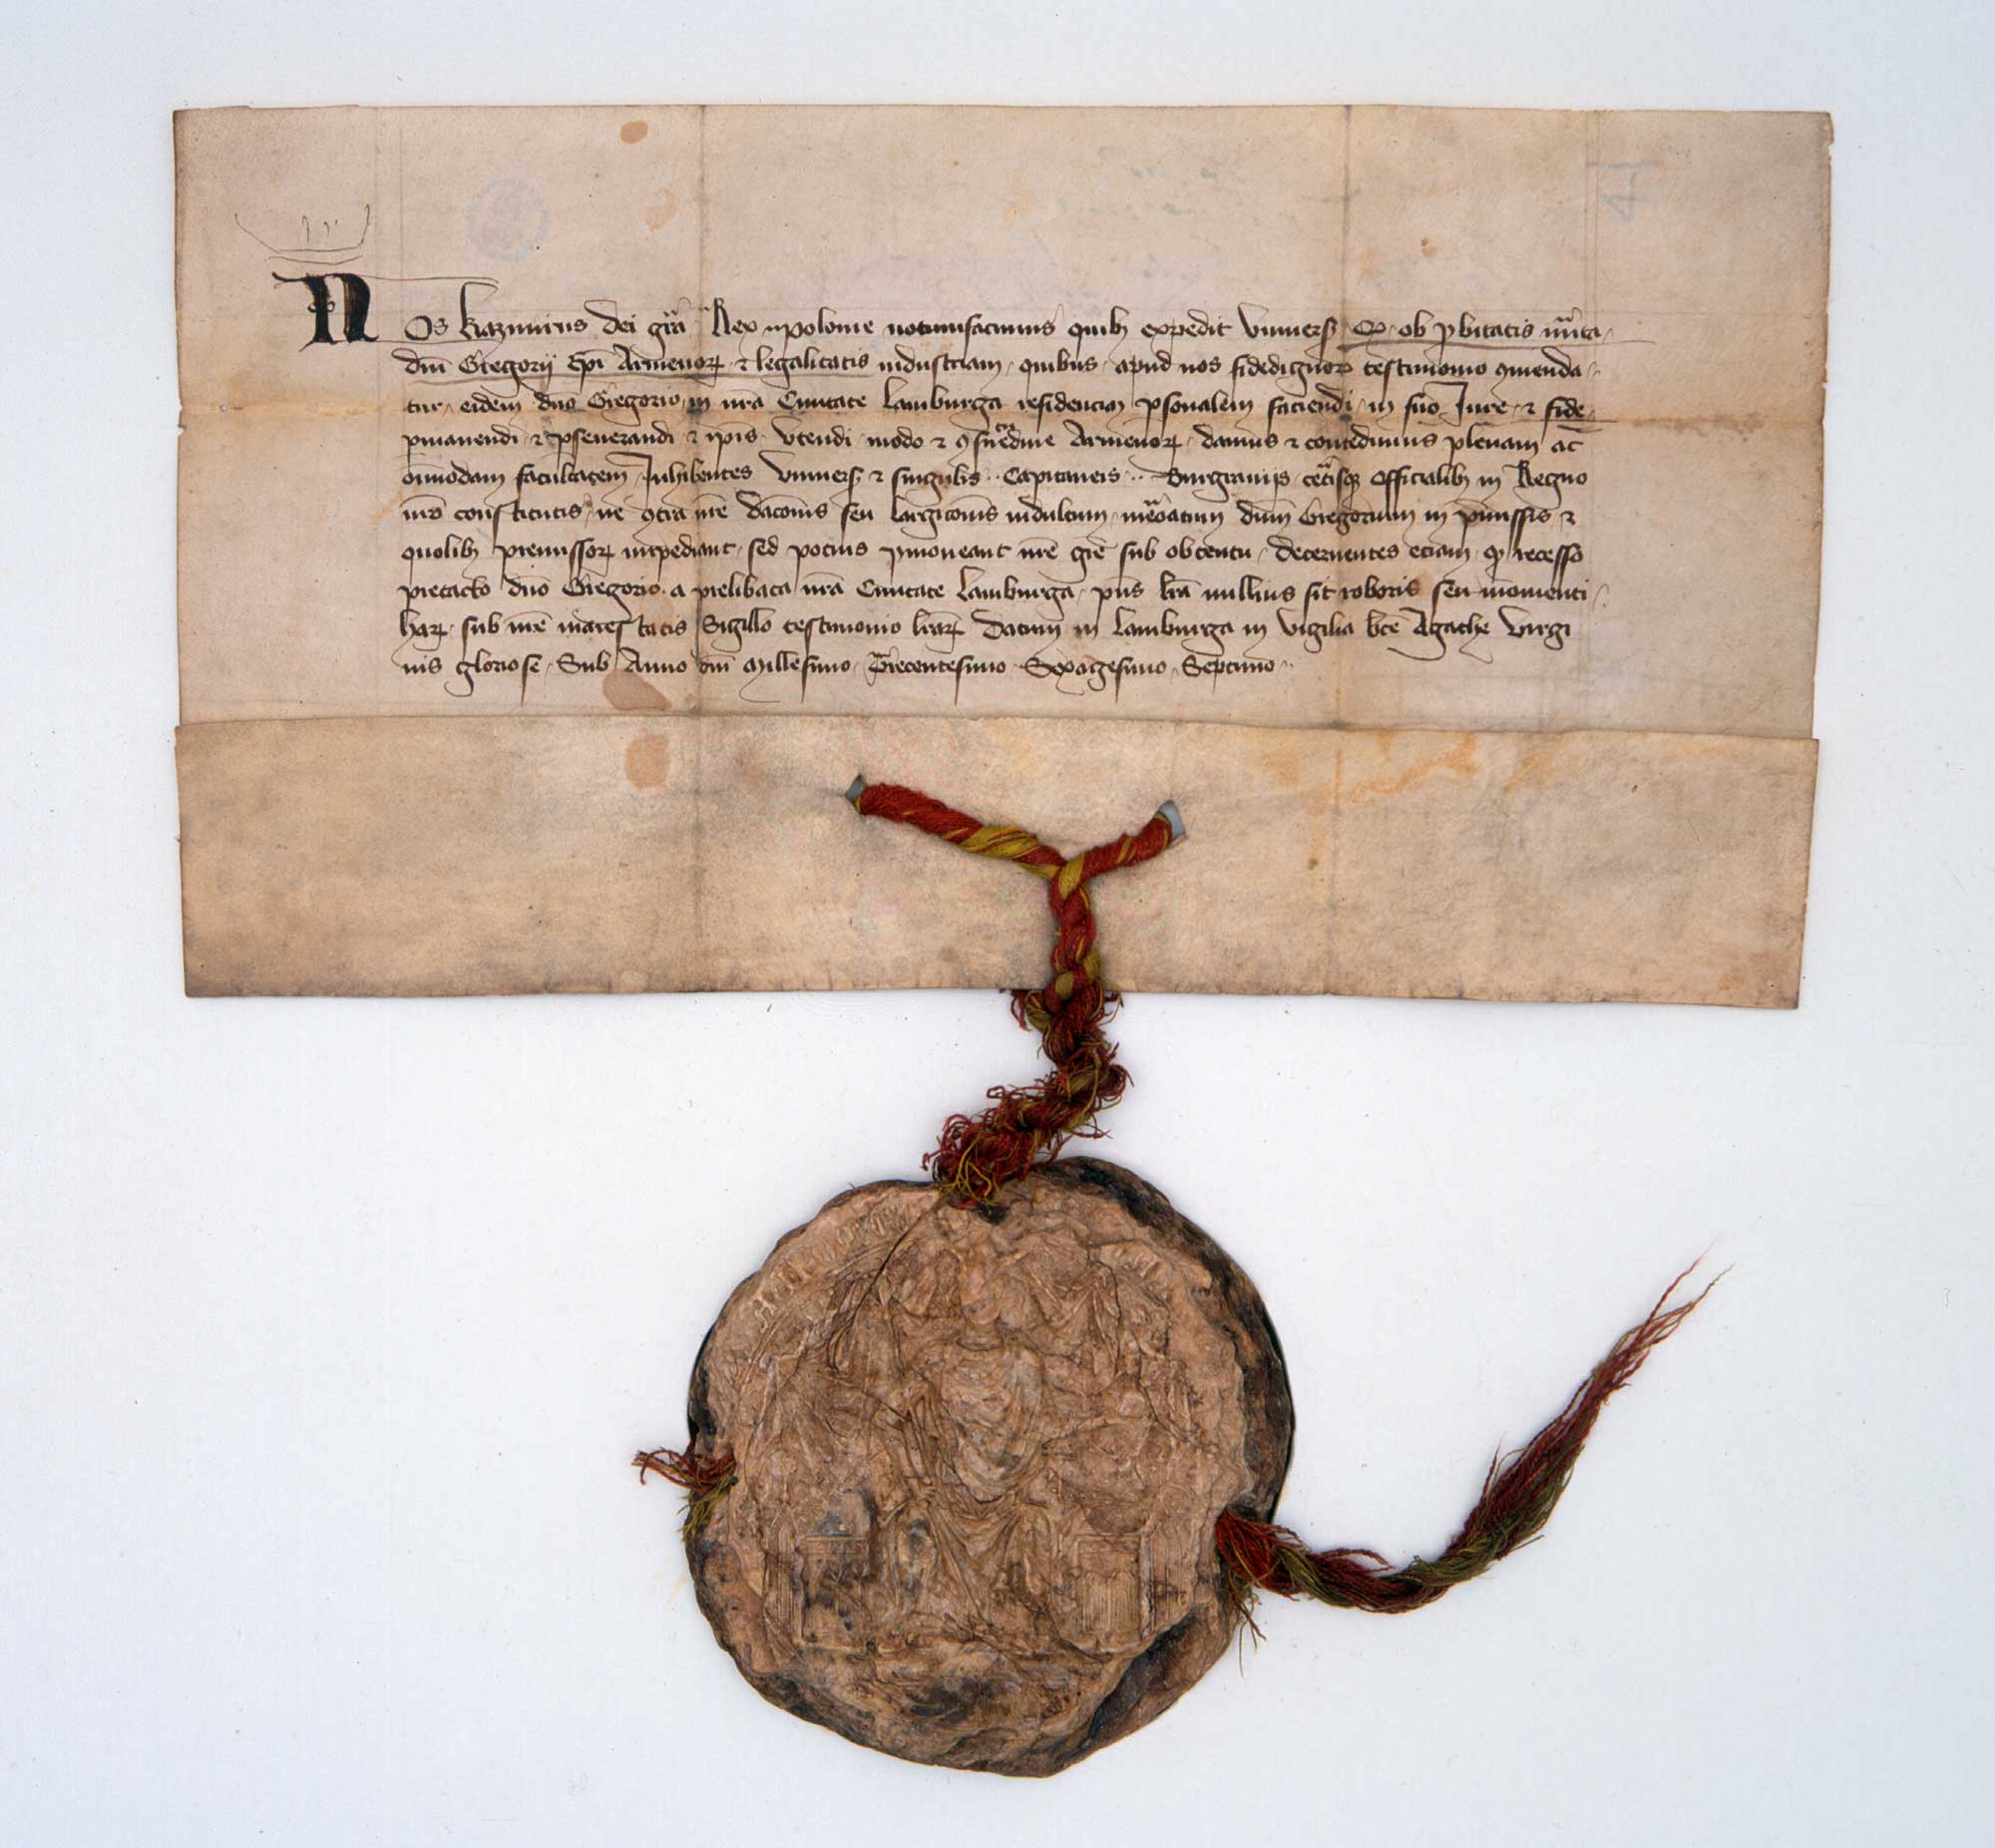 Nos Kazimirus dei gr̄a Rex polonie notumfacimus quibꝫ expedit Vniuersꝭ Qꝫ ob ꝓbitatis mīta
dn̄i Gregorij Ep̄i Armenoꝝ ⁊ legalitatis industriam quibus apud nos fidedignoꝝ testimonio ꝯmenda
tur eidem dn̄o Gregorio in nr̄a Ciuitate Lamburga residenciam ꝑsonalem faciendi in suo Iure ⁊ fide
ꝑmanendi ⁊ ꝑseuerandi ⁊ ip̄is vtendi modo ⁊ ꝯsuedīne Armenoꝝ damus ⁊ concedimus plenam ac
oīmodam facultatem Inhibentes Vniuersꝭ ⁊ singulis Capitaneis Burgrauijs cet̄isqꝫ officialibꝫ in Regno
nr̄o constitutis ne ꝯtra nr̄e dac̄onis seu largic̄onis indultum mēoratum dn̄m Gregorium in p̄missis ⁊
quolibꝫ premissoꝝ impediant sed pocius ꝓmoueant nr̄e gr̄e sub obtentu decernentes eciam ꝙ recesso
pretacto dn̄o Gregorio a prelibata nr̄a Ciuitate Lamburga p̄ns lr̄a nullius sit roboris seu momenti
harꝝ sub nr̄e maiestatis Sigillo testimonio lr̄arꝝ Datum in Lamburga in vigilia bt̄e Agathe virgi
nis gloriose Sub Anno dn̄i Millesimo Trecentesimo Sexagesimo Septimo